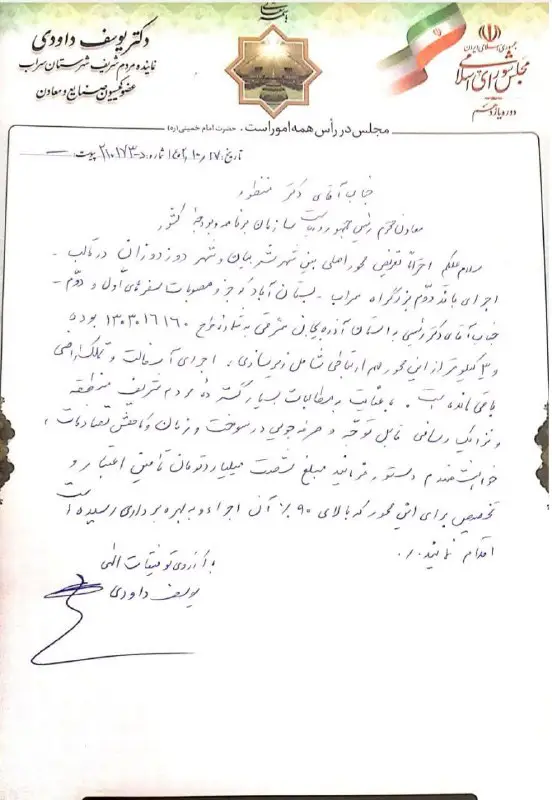 باسمه تعالی
دکتر یوسف داودی
نماینده مردم شریف شهرستان سراب
عضو کمیسیون صنایع و معادن
جمهوری اسلامی ایران
مجلس شورای اسلامی
دوره یازدهم
مجلس در رأس همه امور است. حضرت امام خمینی (ره)
تاریخ: ۱۴۰۲/۱۰/۱۷ شماره: د-۲۱۰۱۷۳ پیوست:
جناب آقای دکتر منظور
معاون محترم رئیس جمهور و ریاست سازمان برنامه و بودجه کشور
سلام علیکم احتراماً تعریض محور اصلی بین شهر شربیان و شهر دوزدوزان در قالب
اجرای باند دوم بزرگراه سراب - بستان آباد که جزو مصوبات سفرهای اول و دوم
جناب آقای دکتر رئیسی به استان آذربایجان شرقی به شماره طرح ۱۳۰۳۰۱۶۱۶۰ بوده
و ۳ کیلومتر از این محور مهم ارتباطی شامل زیرسازی، اجرای آسفالت و تملک اراضی
باقی مانده است. با عنایت به مطالبات بسیار گسترده مردم شریف منطقه
و ترافیک رسانی قابل توجه و صرفه جویی در سوخت و زمان و کاهش تصادفات،
خواهشمندم دستور فرمائید مبلغ شصت میلیارد تومان تأمین اعتبار و
تخصیص برای این محور که بالای ۹۰٪ آن اجرا و به بهره برداری رسیده است
اقدام نمائید.
با آرزوی توفیقات الهی
یوسف داودی